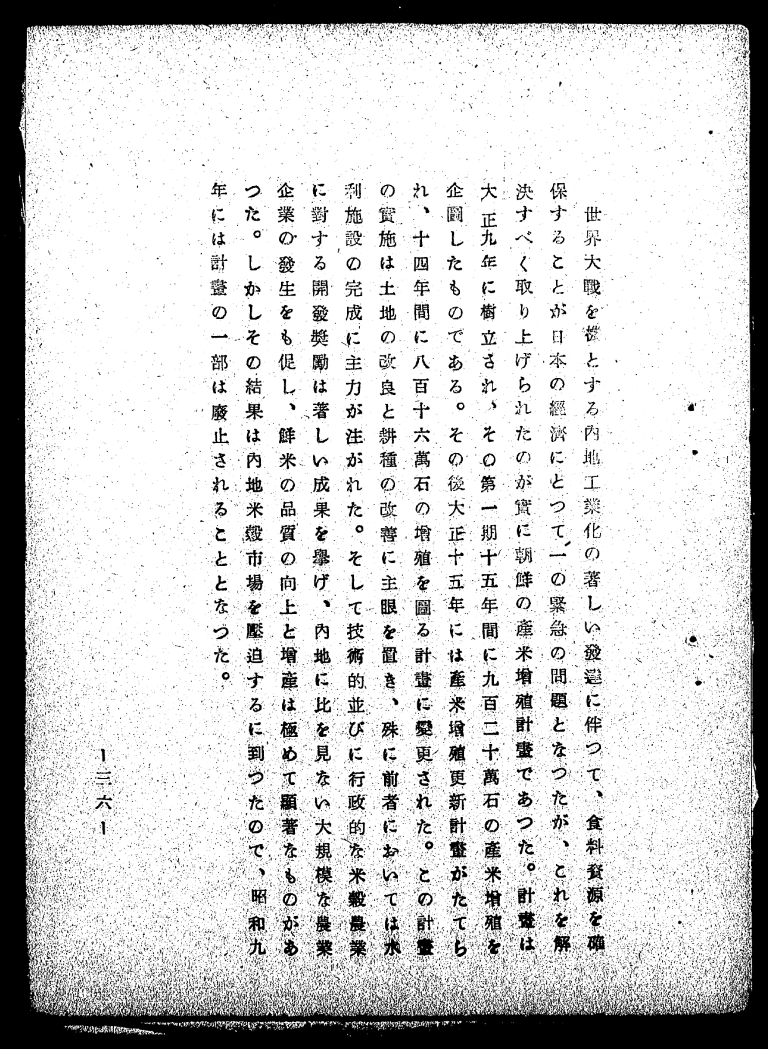 世界大戰を契機とする內地工業化の著しい發達に伴つて、食料資源を確
保することが日本の經濟にとつて、一の緊急の問題となつたが、これを解
決すべく取り上げられたのが實に朝鮮の產米增殖計畫であつた。計畫は
大正九年に樹立され、その第一期十五年間に九百二十萬石の產米增殖を
企圖したものである。その後大正十五年には產米增殖更新計畫がたてら
れ、十四年間に八百十六萬石の增殖を圖る計畫に變更された。この計畫
の實施は土地の改良と耕種の改善に主眼を置き、殊に前者においては水
利施設の完成に主力が注がれた。そして技術的並びに行政的な米穀農業
に對する開發奬勵は著しい成果を擧げ、內地に比を見ない大規模な農業
企業の發生をも促し、鮮米の品質の向上と增產は極めて顯著なものがあ
つた。しかしその結果は內地米穀市場を壓迫するに到つたので、昭和九
年には計畫の一部は廢止されることとなつた。
—三六—